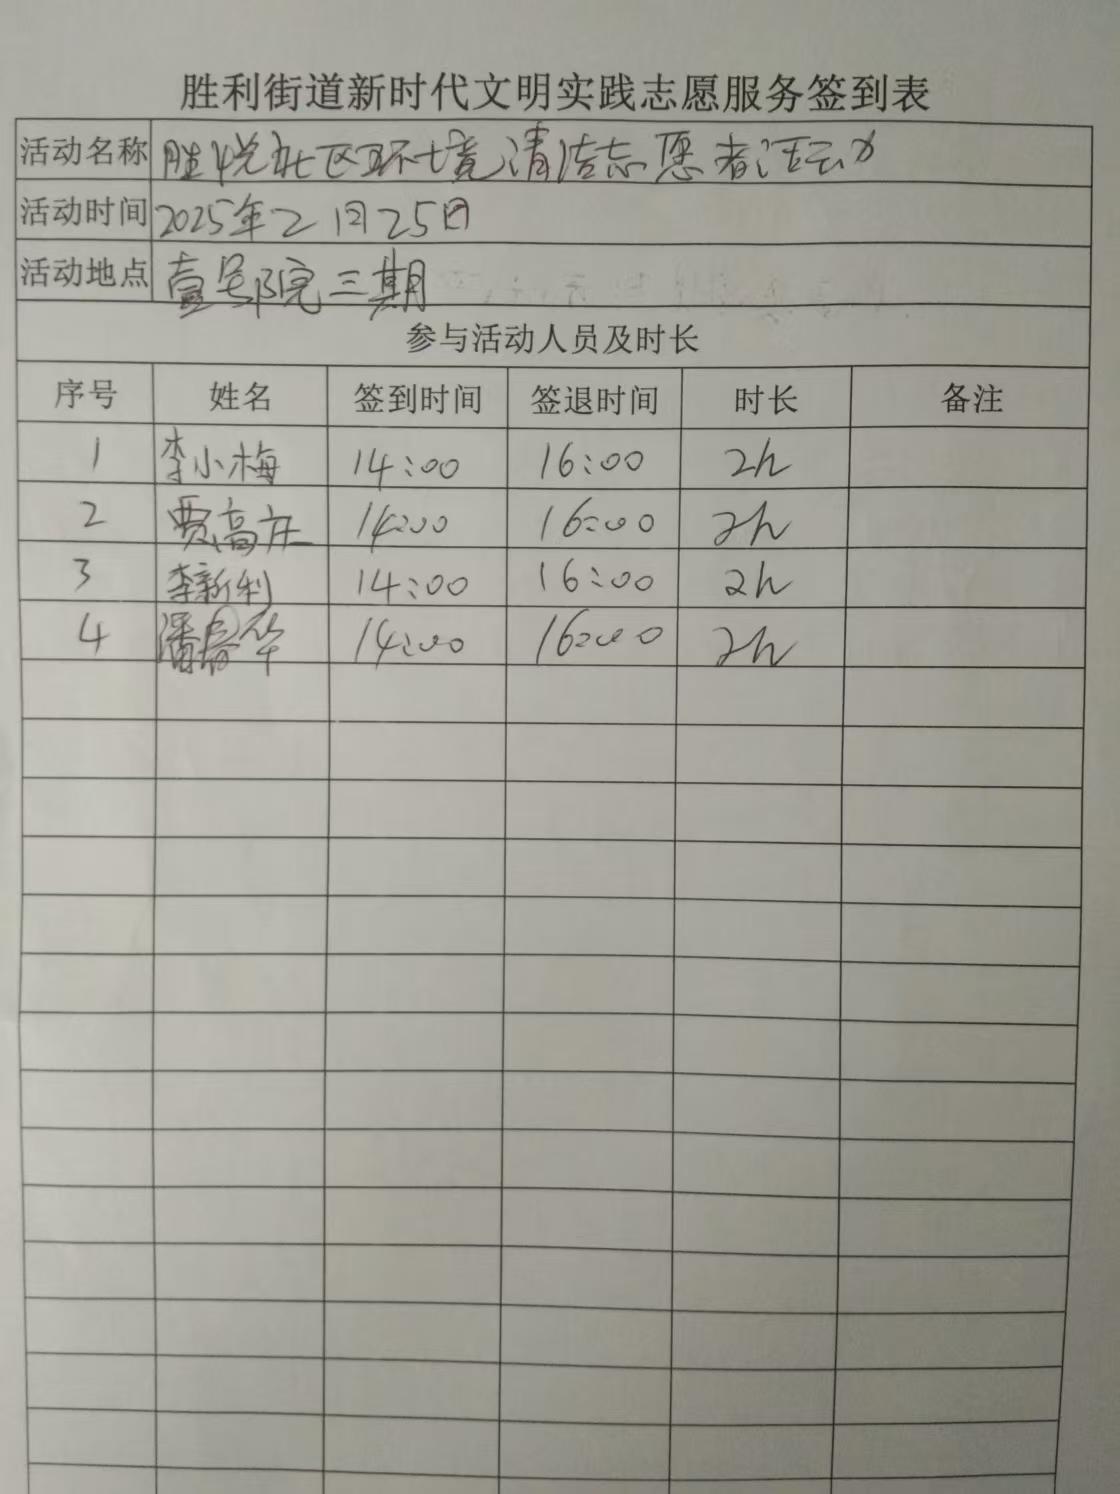 胜利街道新时代文明实践志愿服务签到表
活动名称 胜悦社区环境清洁志愿者活动
活动时间 2025年2月25日
活动地点 壹号院三期
参与活动人员及时长
序号 姓名 签到时间 签退时间 时长 备注
1 李小梅 14:00 16:00 2h
2 贾高庄 14:00 16:00 2h
3 李新利 14:00 16:00 2h
4 潘春华 14:00 16:00 2h